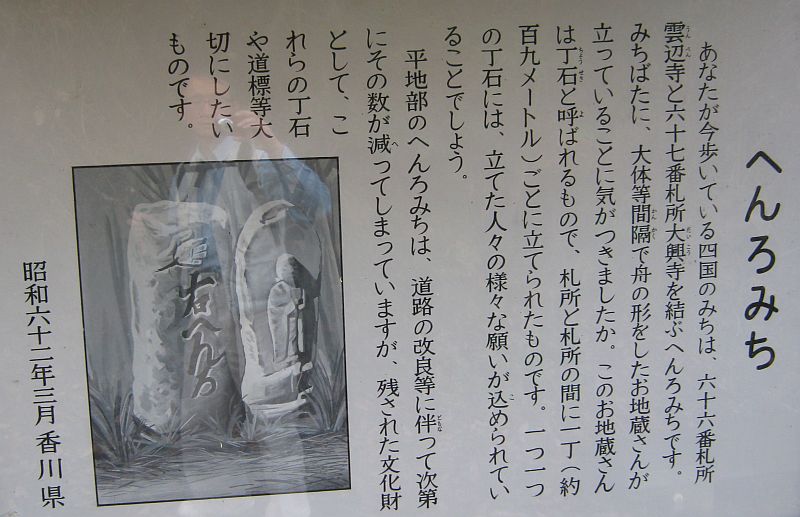 へんろみち
あなたが今歩いている四国のみちは、六十六番札所
雲辺寺と六十七番札所大興寺を結ぶへんろみちです。
みちばたに、大体等間隔で舟の形をしたお地蔵さんが
立っていることに気がつきましたか。このお地蔵さん
は丁石と呼ばれるもので、札所と札所の間に一丁(約
百九メートル)ごとに立てられたものです。一つ一つ
の丁石には、立てた人々の様々な願いが込められてい
ることでしょう。
平地部のへんろみちは、道路の改良等に伴って次第
にその数が減ってしまっていますが、残された文化財
として、こ
れらの丁石
や道標等大
切にしたい
ものです。
右へんろ
昭和六十二年三月 香川県